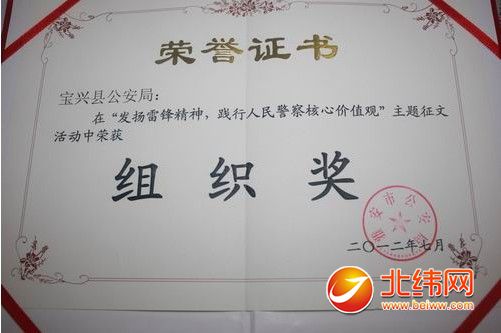 荣誉证书
宝兴县公安局：
在“发扬雷锋精神，践行人民警察核心价值观”主题征文
活动中荣获
组织奖
雅安市公安局
二〇一二年七月
北纬网
www.beiww.com